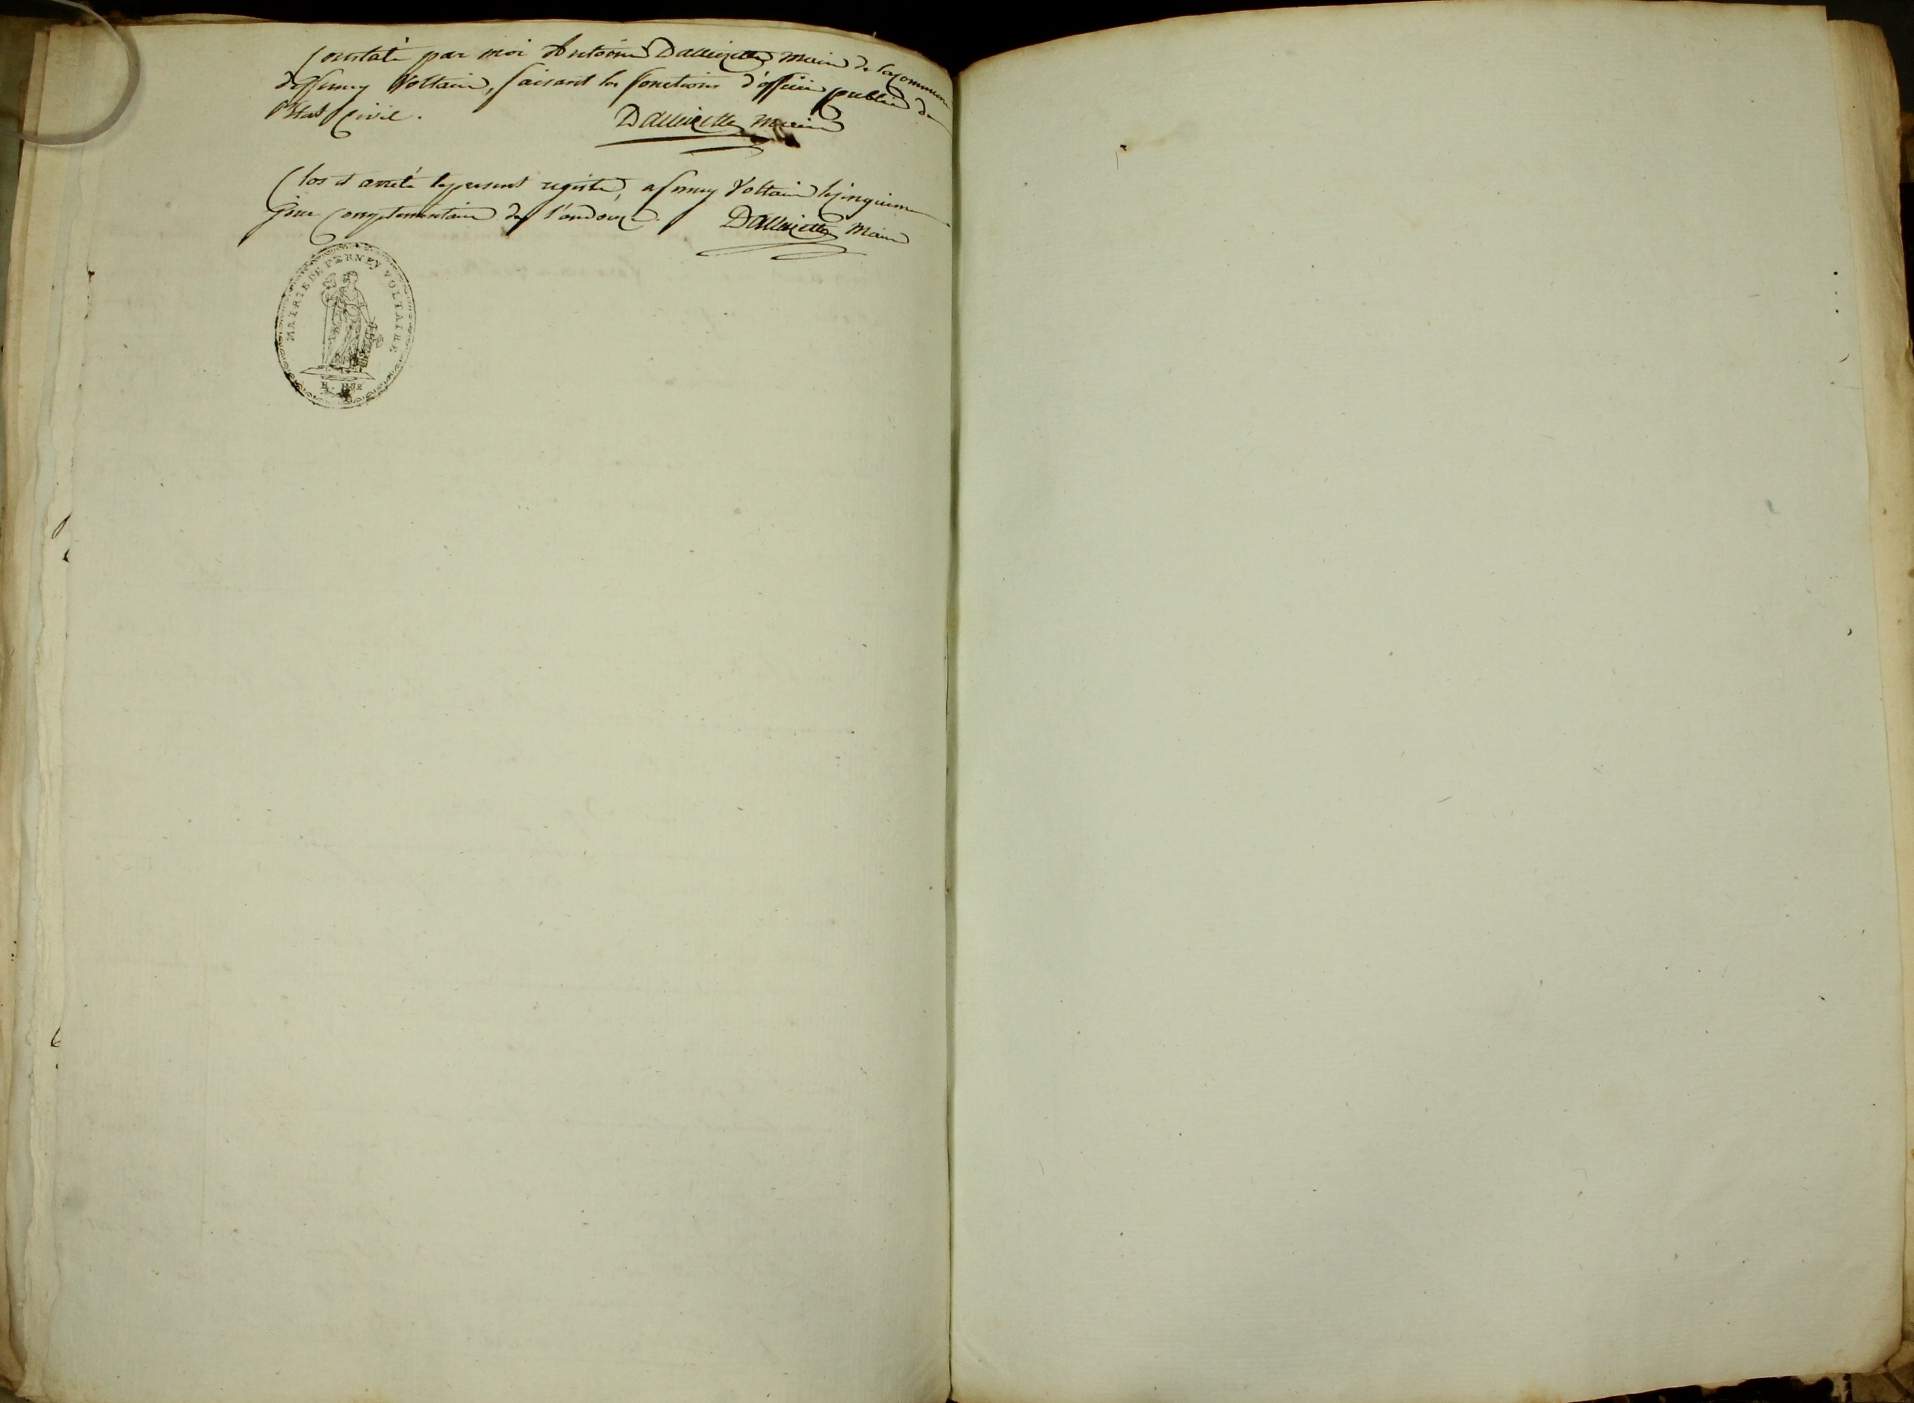 Constaté par moi Antoine Dalloizette maire de la commune
de fferney Voltaire, faisant les fonctions d'officier public de
l'état Civil.
Dalloizette maire
Clos et arreté le present registre, a ferney Voltaire le cinquieme
jour Complementaire de l'an douze. Dalloizette maire
MAIRIE DE FERNEY VOLTAIRE